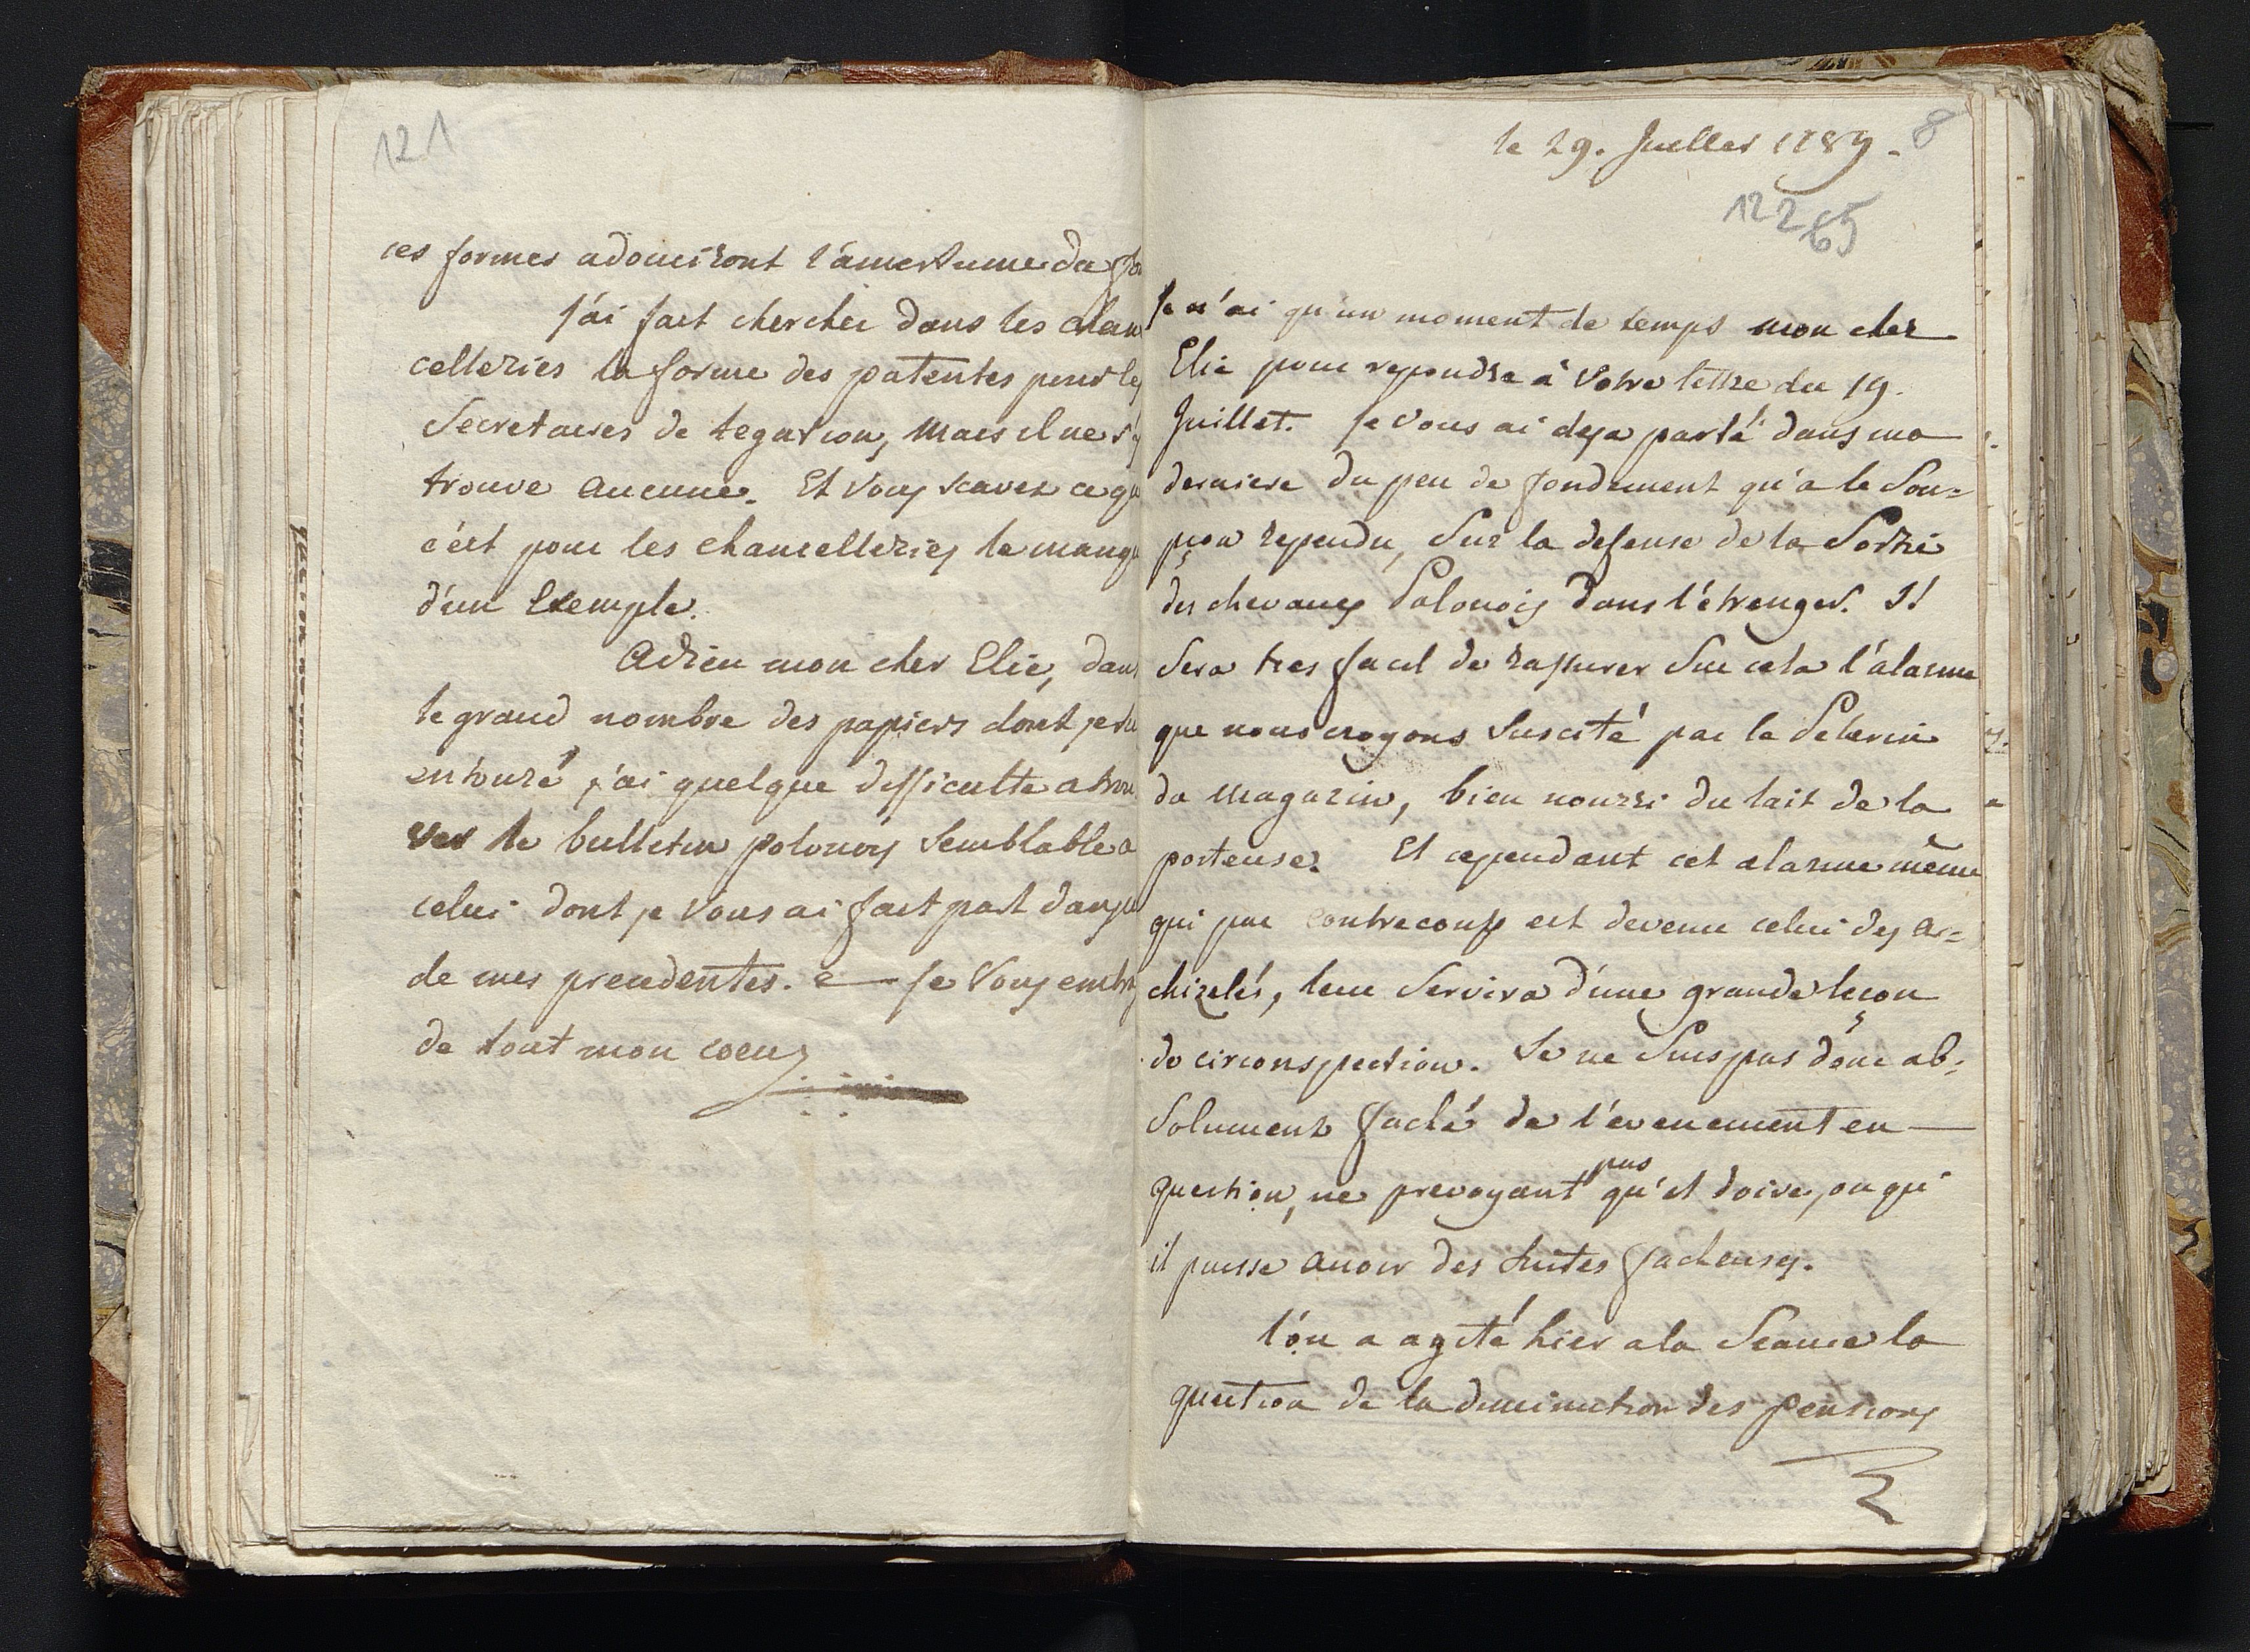 121
ces formes adouciront l'amertume du fo
j'ai fait chercher dans les chan
celleries la forme des patentes pour les
Secretaires de legation, mais il ne s'y
trouve aucune. Et vous scavez ce qu
c'est pour les chancelleries le manqu
d'un Exemple.
Adieu mon cher Elie, dans
le grand nombre des papiers dont je su
entouré, j'ai quelque difficulte a trou
ver le bulletin polonois semblable a
celui dont je vous ai fait part dans
de mes precedentes. Je vous embr
de tout mon coeur
le 29. Juillet 1789. 8
122
65
Je n'ai qu'un moment de temps mon cher
Elie pour repondre à votre lettre du 19.
Juillet. Je vous ai deja parlé dans ma
derniere du peu de fondement qu'a le Sou=
pçon rependu, Sur la defense de la Sortie
des chevaux Polonois dans l'étranger. Il
Sera tres facil de rassurer Sur cela l'alarme
que nous croyons Suscité par le Pelerin
du magazin, bien nourri du lait de la
porteuse. Et cependant cet alarme même
qui par contrecoup est devenu celui des ar=
chizelés, leur Servira d'une grande leçon
de circonspection. Je ne Suis pas donc ab=
Solument faché de l'evenement en
question, ne prevoyant pas qu'il doive, ou qu'
il puisse avoir des Suites facheuses.
l'on a agité hier a la Seance la
question de la diminution des pensions